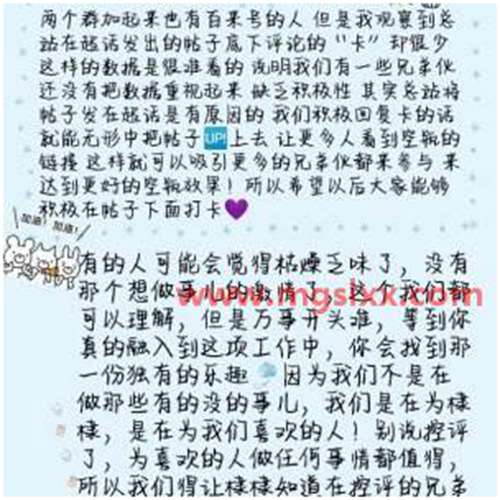 两个群加起来也有百来号的人 但是我观察到总
站在超话发出的帖子底下评论的“卡”却很少
这样的数据是很难看的 说明我们有一些兄弟伙
还没有把数据重视起来 缺乏积极性 其实总站将
帖子发在超话是有原因的 我们积极回复卡的话
就能无形中把帖子UP!上去 让更多人看到空瓶的
链接 这样就可以吸引更多的兄弟伙都来参与 来
达到更好的空瓶效果！所以希望以后大家能够
积极在帖子下面打卡
加油！加油！
有的人可能会觉得枯燥乏味了，没有
那个想做事儿的激情了，这个我们都
www.mgslxx.com
可以理解，但是万事开头难，等到你
真的融入到这项工作中，你会找到那
一份独有的乐趣 因为我们不是在
做那些有的没的事儿，我们是在为棣
棣，是在为我们喜欢的人！别说控评
了，为喜欢的人做任何事情都值得，
所以我们得让棣棣知道在控评的兄弟